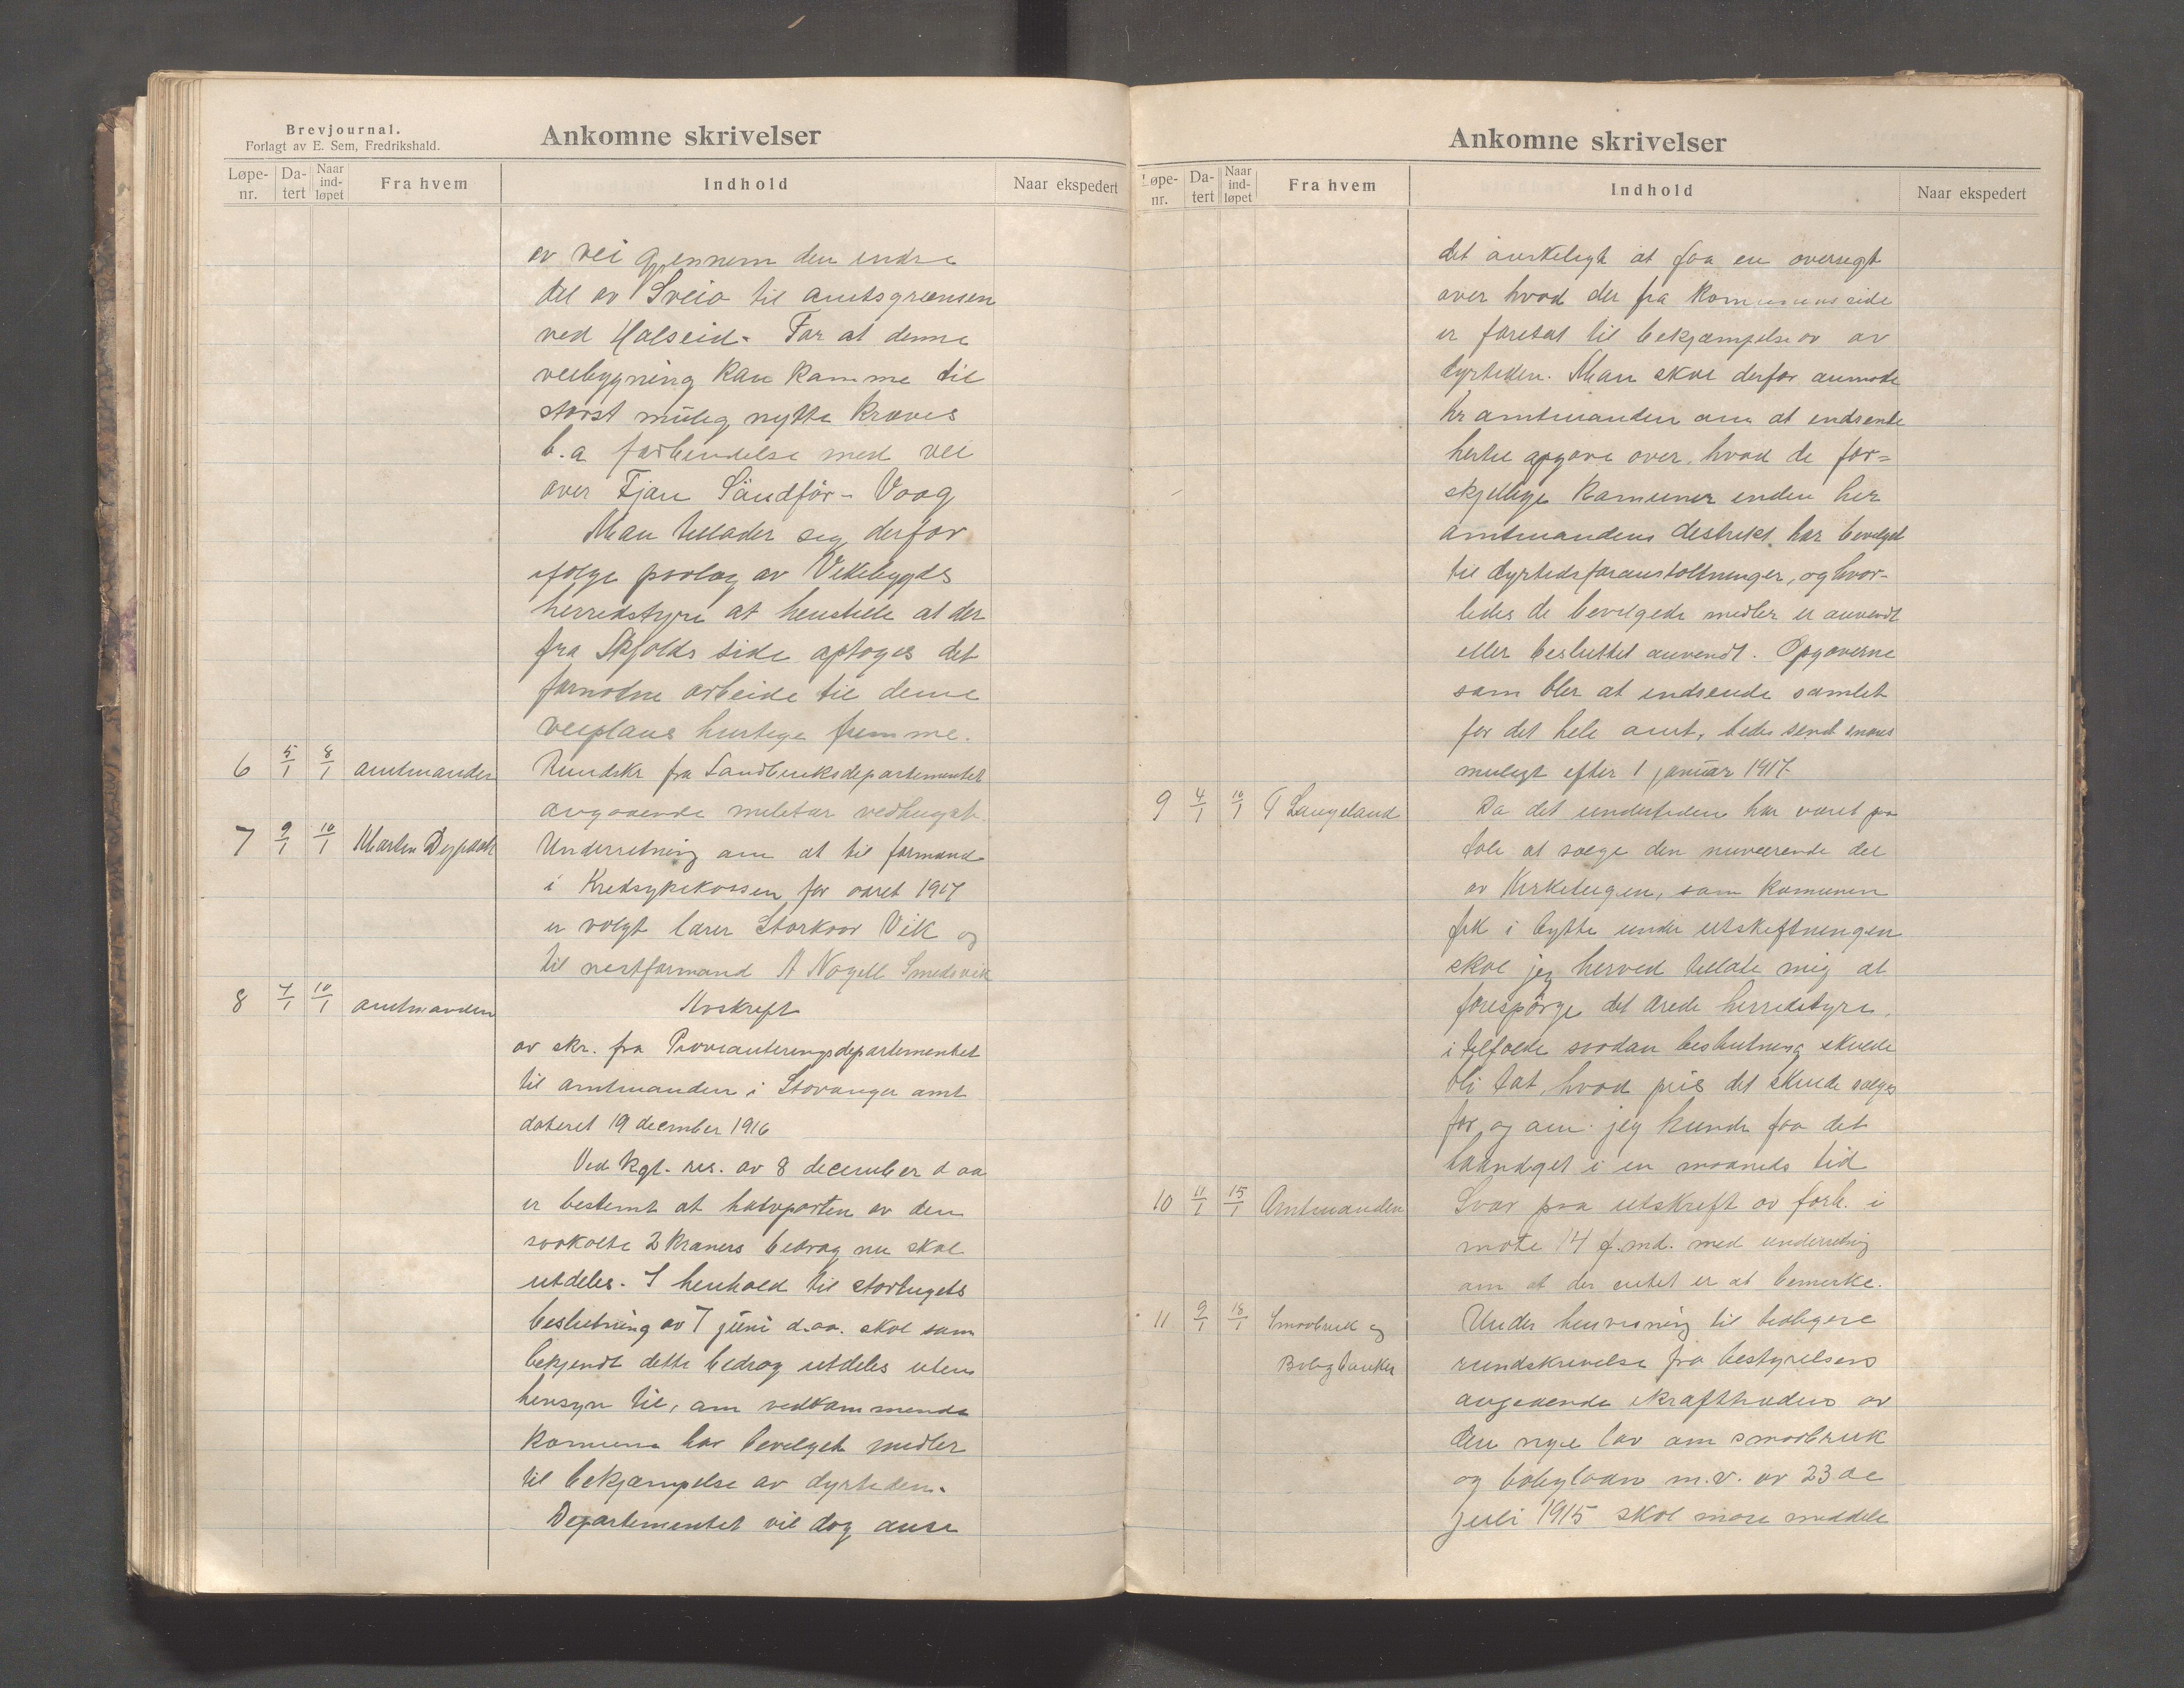 Brevjournal.
Forlagt av E. Sem, Fredrikshald.
Ankomne skrivelser
Løpe-nr. Da-tert Naar ind-løpet Fra hvem Indhold Naar ekspedert
av vei gjennem den indre
del av Sveio til amtsgrænsen
ved Halseid. For at denne
veibygning kan komme til
størst mulig nytte kræves
b.a forbindelse med vei
over Fjon Sandfør - Vaag
Man tillader sig derfor
ifølge paalæg av Vikebygds
herredstyre at henstille at der
fra Skjolds side optoges det
fornødne arbeide til denne
veiplans hurtige fremme.
6 5/1 8/1 amtmanden Rundskr fra Landbruksdepartementet
angaaende militær vedhugst.
7 9/1 10/1 Martin Underretning om at til formand
i Kredssykekassen for aaret 1917
er valgt lærer Storkaar Vik og
til nestformand A Smedsvik
8 4/1 10/1 amtmanden Avskrift
av skr. fra Provianteringsdepartementet
til amtmanden i Stavanger amt
dateret 19 december 1916
Ved Kgl. res. av 8 december d aa
er bestemt at halvparten av den
saakalte 2 kroners bedrag nu skal
utdeles. I henhold til stortingets
beslutning av 7 juni d.aa. skal som
bekjendt dette bedrag utdeles uten
hensyn til, om vedkommende
komune har bevilget midler
til bekjæmpelse av dyrtiden.
Departementet vil dog anse
Ankomne skrivelser
Løpe-nr. Da-tert Naar ind-løpet Fra hvem Indhold Naar ekspedert
det ønskeligt at faa en oversigt
over hvad der fra komunens side
er foretat til bekjæmpelse av av
dyrtiden. Man skal derfor anmode
hr amtmanden om at indsende
hertil opgave over, hvad de for=
skjellige komuner inden her
amtmandens distrikt har bevilget
til dyrtidsforanstaltninger, og hvor-
ledes de bevilgede midler er anvendt
eller besluttet anvendt. Opgaverne
som bler at indsende samlet
for det hele amt, bedes sendt snarest
muligt efter 1 januar 1917.
9 4/1 10/1 T Langeland Da det undertiden har været paa
tale at sælge den nuværende del
av Kirketeigen, som komunen
fik i bytte under utskiftningen
skal jeg herved tillate mig at
forespørge det ærede herredstyre,
i tilfælde saadan beslutning skulde
bli tat, hvad pris det skulde sælges
for, og om jeg kunde faa det
haandgit i en maaneds tid
10 11/1 15/1 Amtmanden Svar paa utskrift av forh. i
møte 14 f.md. med underretning
om at der intet er at bemerke.
11 9/1 18/1 Smaabruk og Under henvisning til tidligere
Boligbanken rundskrivelse fra bestyrelsen
angaaende ikrafttræden av
den nye lov om smaabruk
og boliglaan m.v. av 23de
juli 1915 skal man meddele